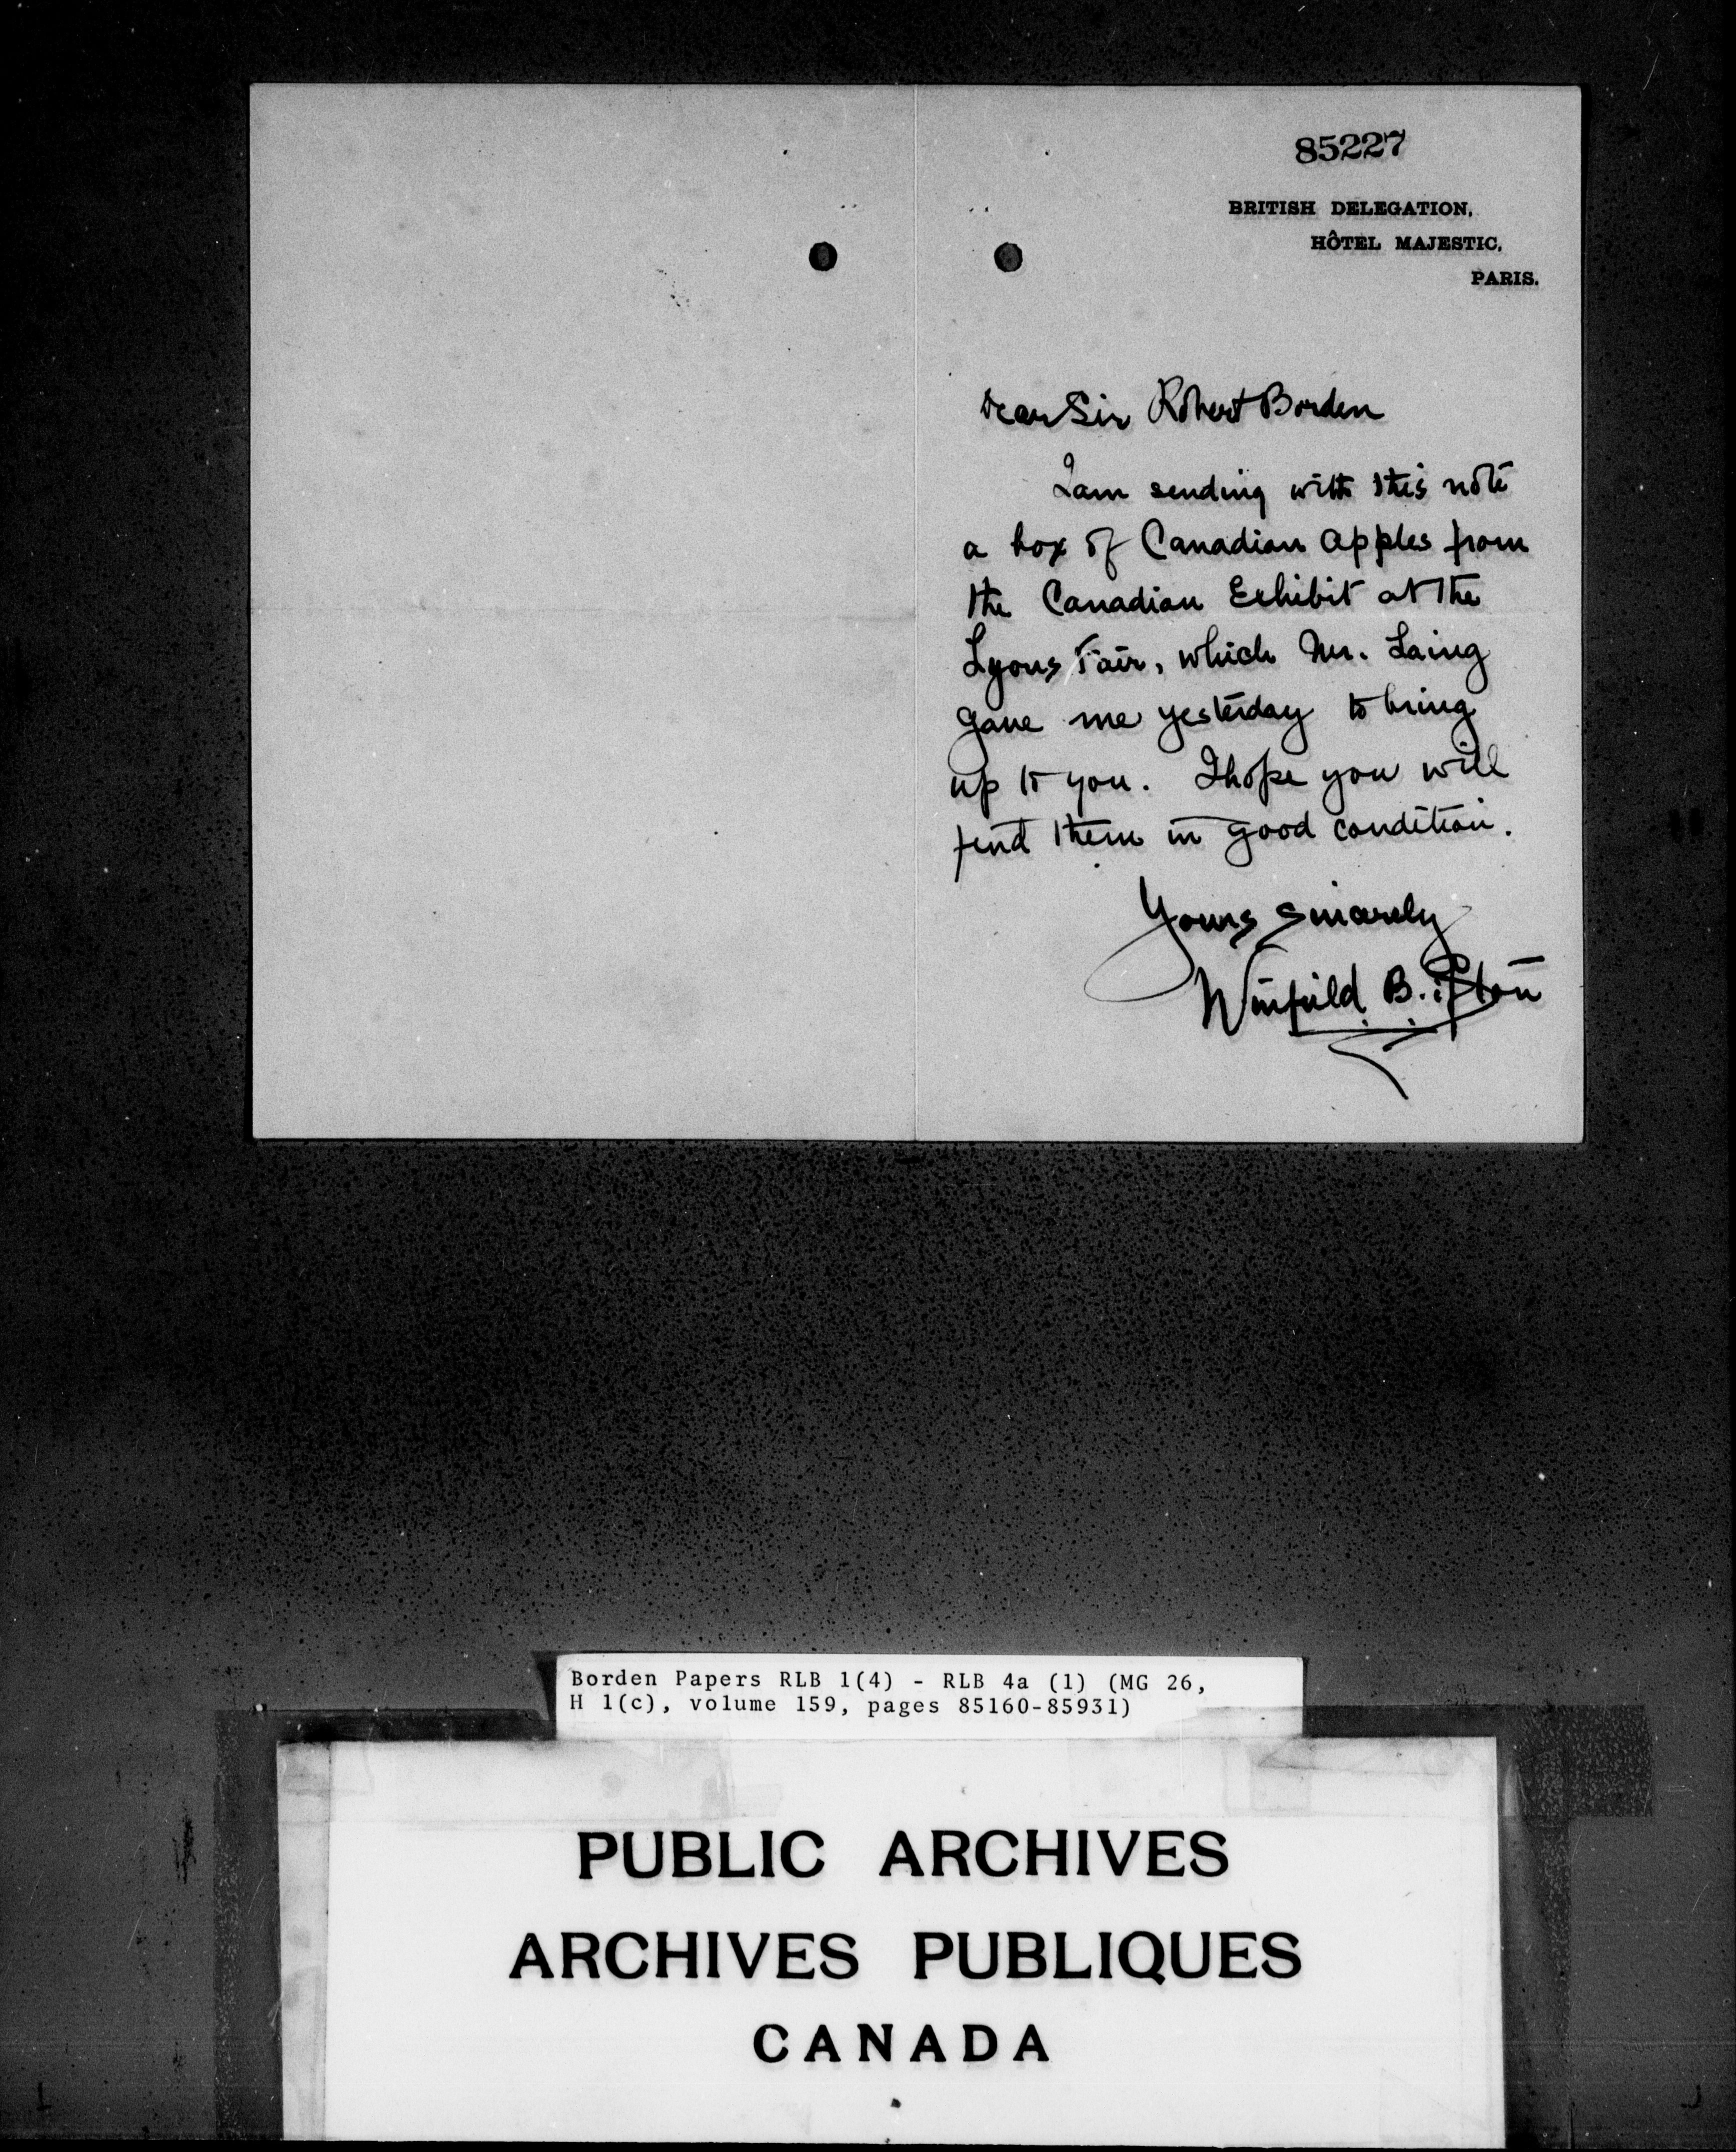 85227
BRITISH DELEGATION,
HÔTEL MAJESTIC,
PARIS.
Dear Sir Robert Borden
I am sending with this note
a box of Canadian Apples from
the Canadian Exhibit at the
Lyons Fair, which Mr. Laing
gave me yesterday to bring
up to you. I hope you will
find them in good condition.
Yours sincerely
Winfield B.
Borden Papers RLB 1(4) - RLB 4a (1) (MG 26,
H 1(c), volume 159, pages 85160-85931)
PUBLIC ARCHIVES
ARCHIVES PUBLIQUES
CANADA